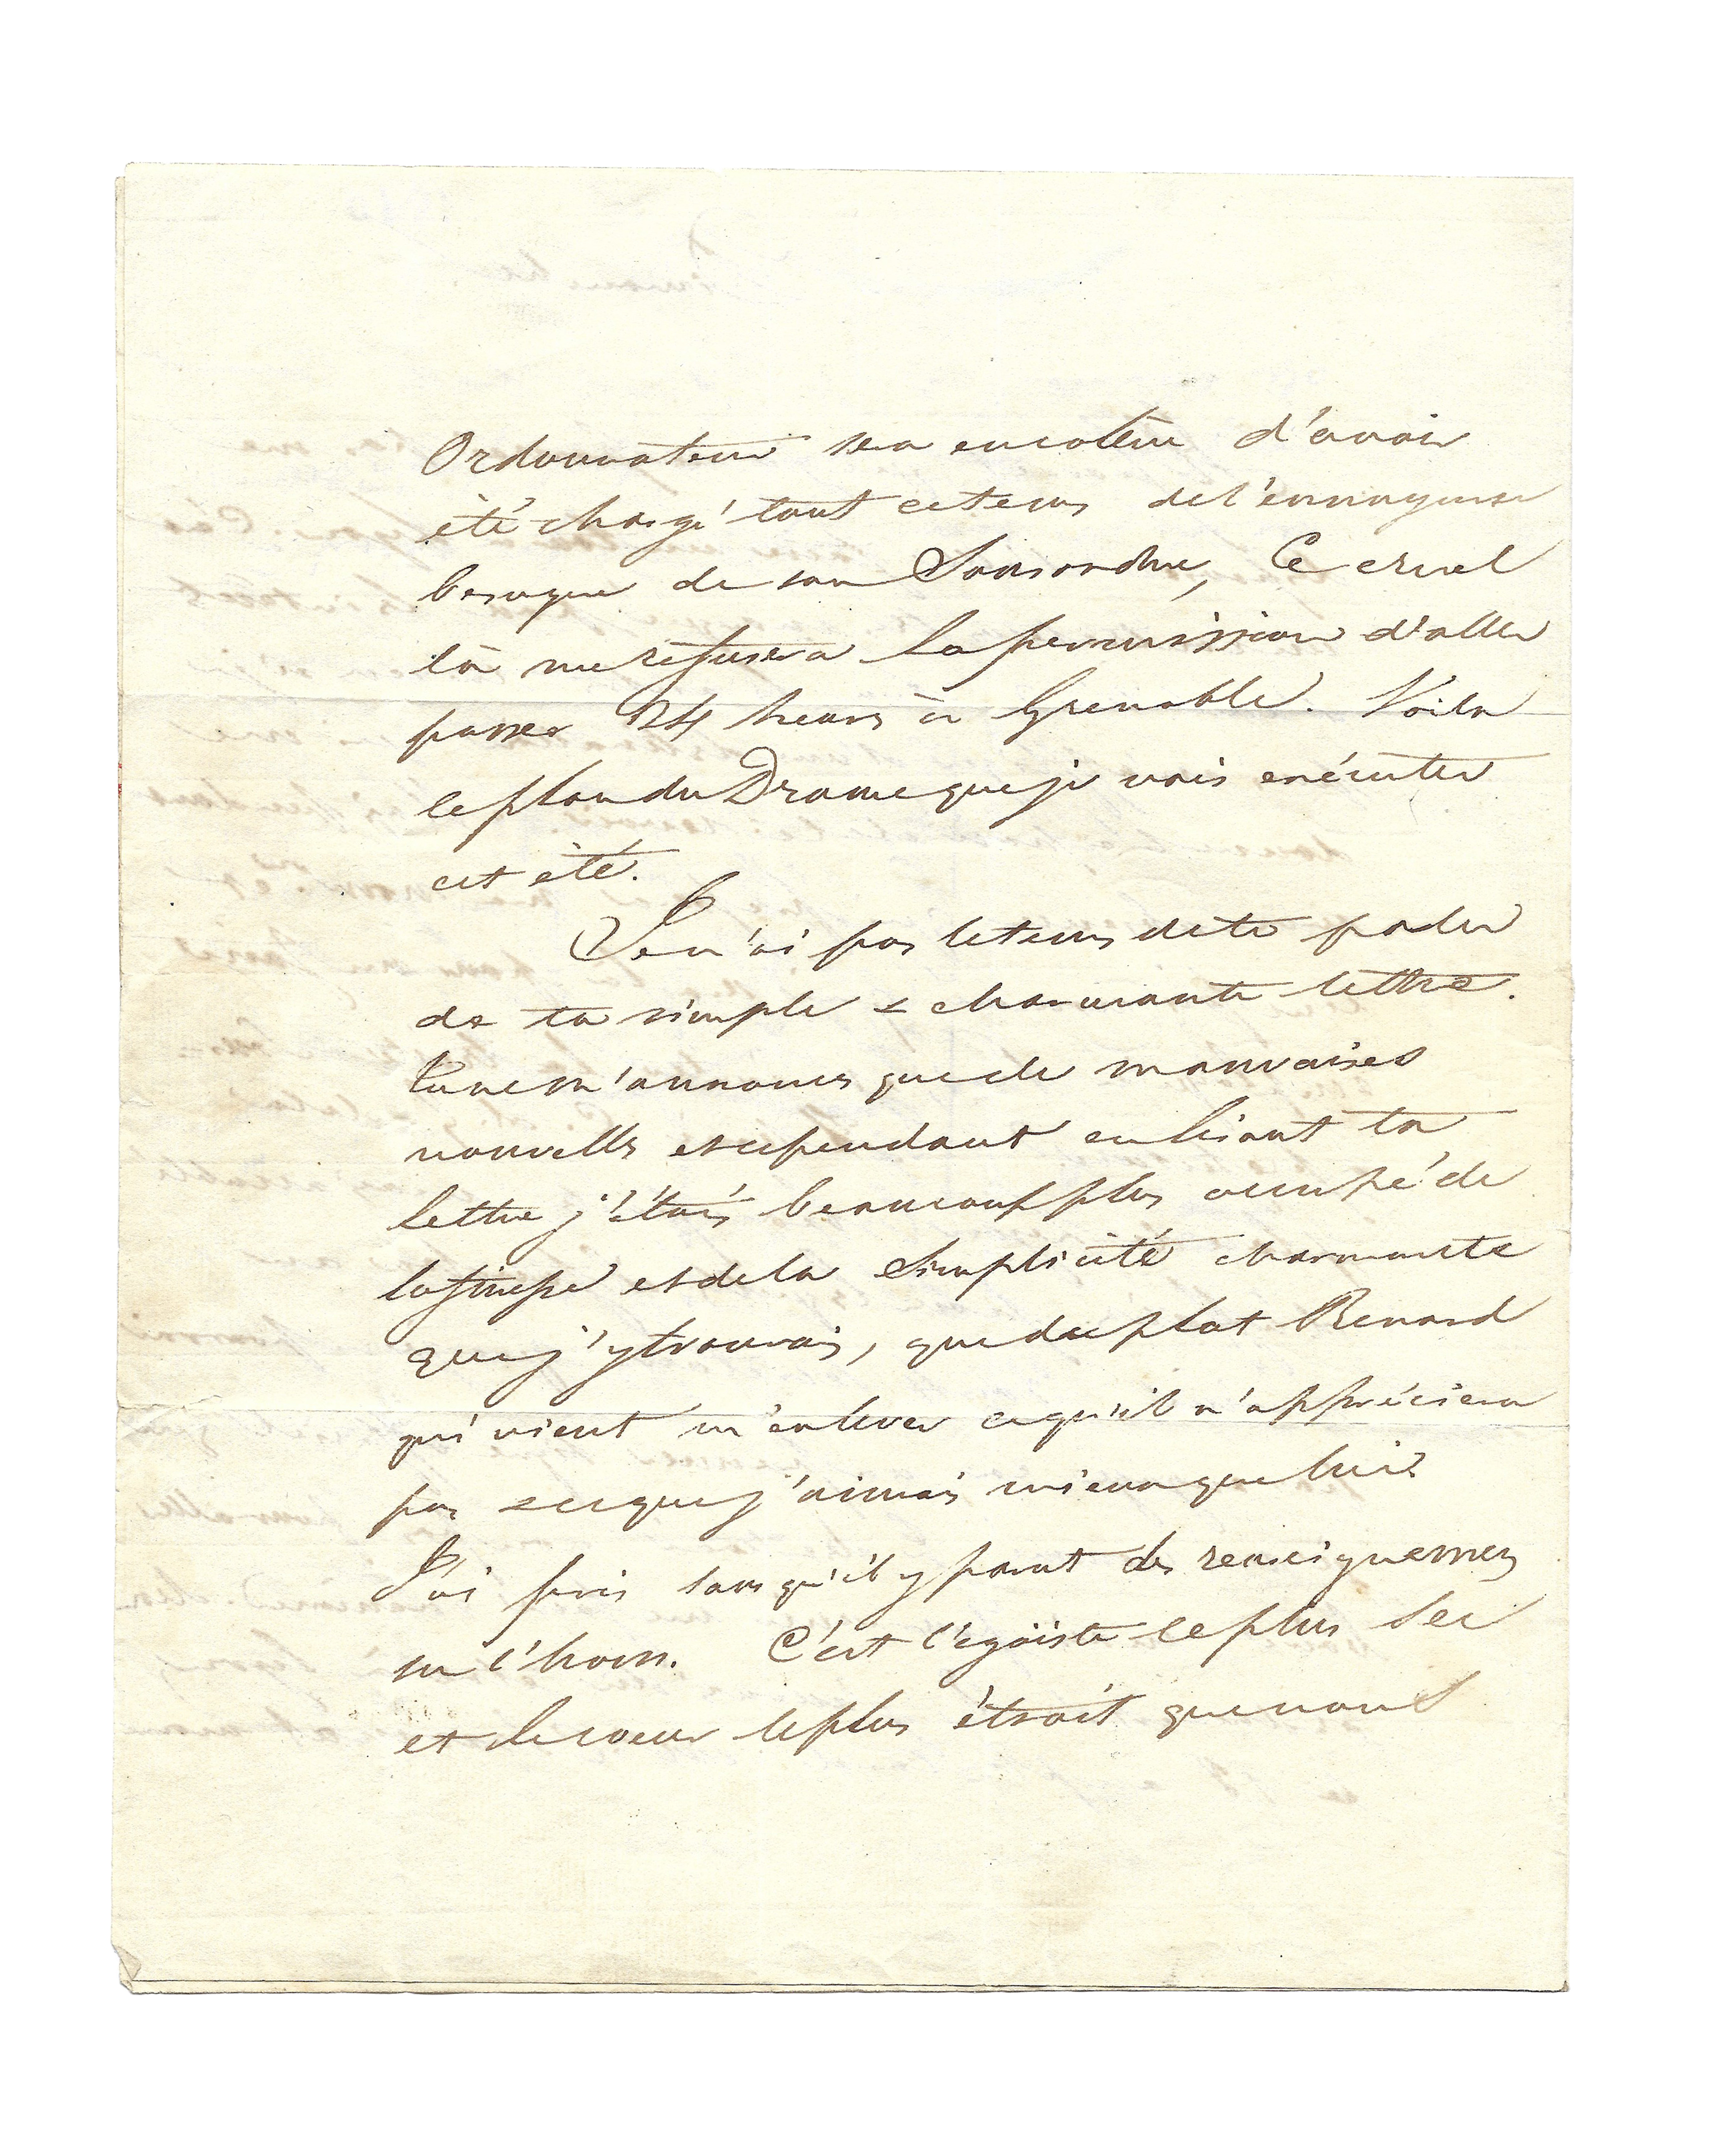 Ordonnateur sera encolère d'avoir
été chargé tout cetems del'ennuyeuse
besogne de son Sousordre, Ce cruel
là me refusera la permission d'aller
passer 24 heures à Grenoble. Voila
leplan du Drame que je vais exécuter
cet été.
Je n'ai pas letems dete parler
de ta simple & charmante lettre.
Tu ne m'annonces que de mauvaises
nouvelles et cependant en lisant ta
lettre j'étais beaucoup plus occupé de
la finesse et de la Simplicité charmante
que j'y trouvais, que du plat Renard
qui vient m'enlever ce qu'il n'appréciera
pas & ce que j'aimais mieux que lui.
J'ai pris sans qu'il y parut des renseignemens
sur l'hom. C'est l'egoiste le plus Sec
et le coeur le plus étroit que nous